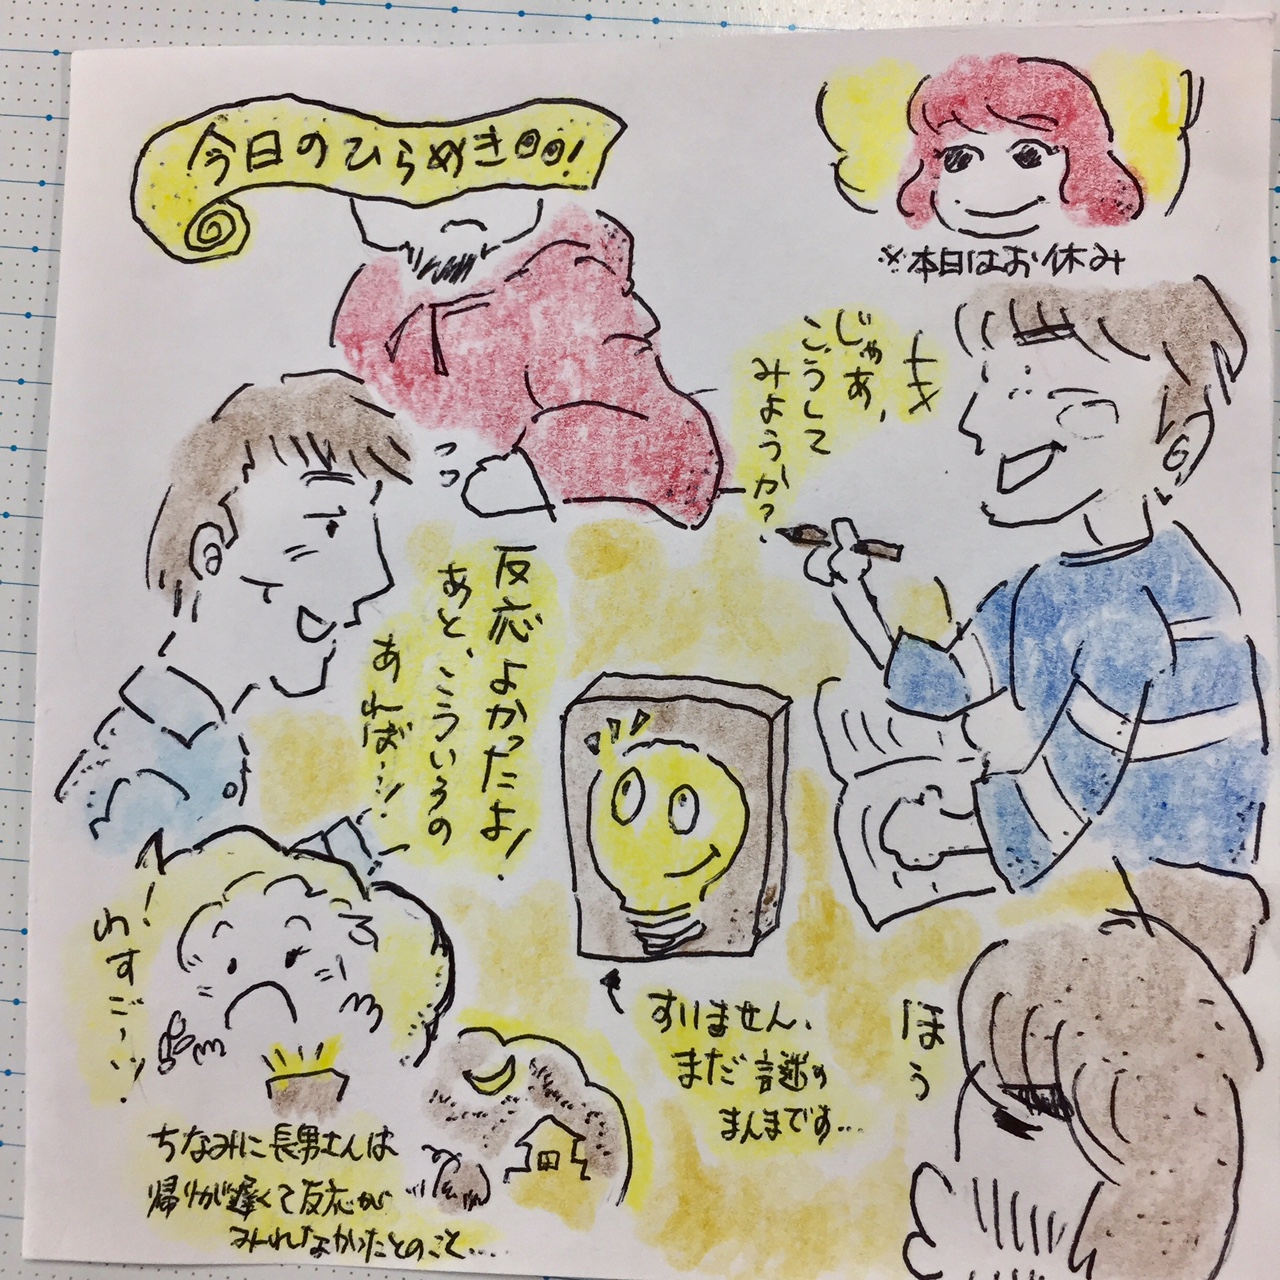 今日のひらめき!
※本日はお休み
じゃあ、
こうして
みようか?
反応よかったよ!
あと、こういうの
あれば…!
わすご〜いッ!
すいません、
まだ謎の
まんまです…
ほう
ちなみに長男さんは
帰りが遅くて反応が
みれなかったとのこと….